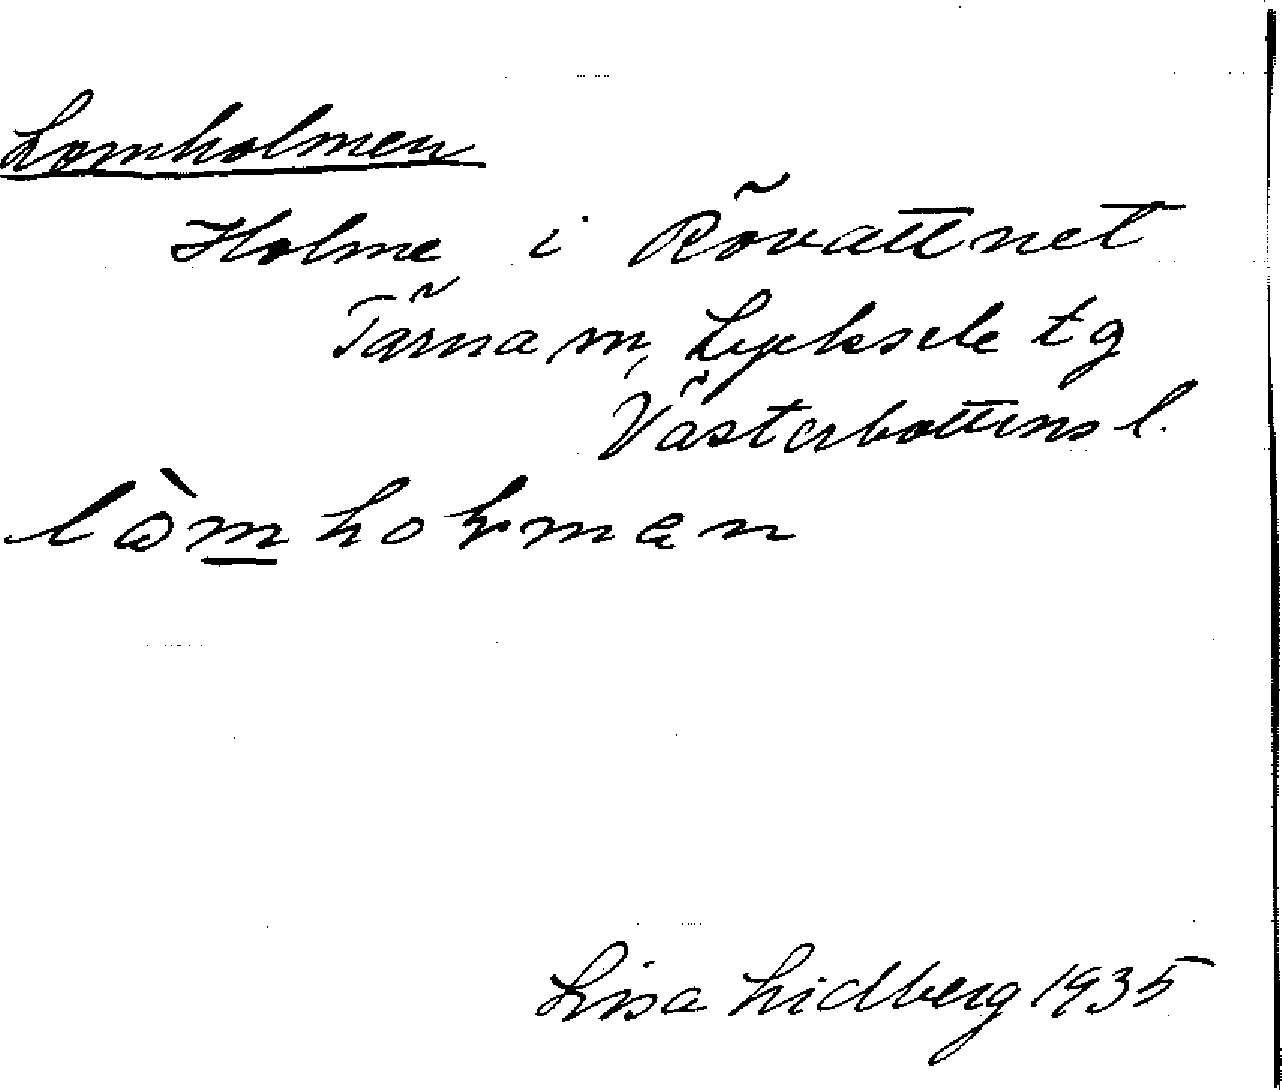 Lomholmen
Holme i Rövattnet
Tärna sn, Lycksele tg
Västerbottens l.
Lisa Lidberg 1935